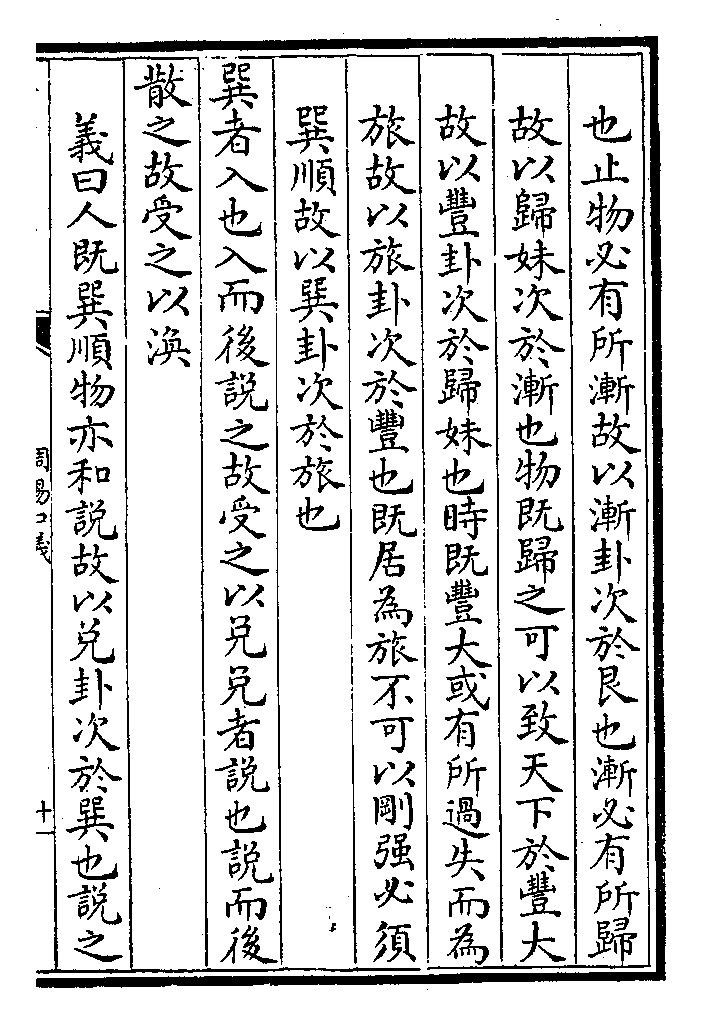 也止物必有所漸故以漸卦次於艮也漸必有所歸
故以歸妹次於漸也物既歸之可以致天下於豐大
故以豐卦次於歸妹也時既豐大或有所過失而為
旅故以旅卦次於豐也既居為旅不可以剛强必須
巽順故以巽卦次於旅也
巽者入也入而後説之故受之以兑兑者説也説而後
散之故受之以渙
義曰人既巽順物亦和説故以兑卦次於巽也説之
周易口義
十一